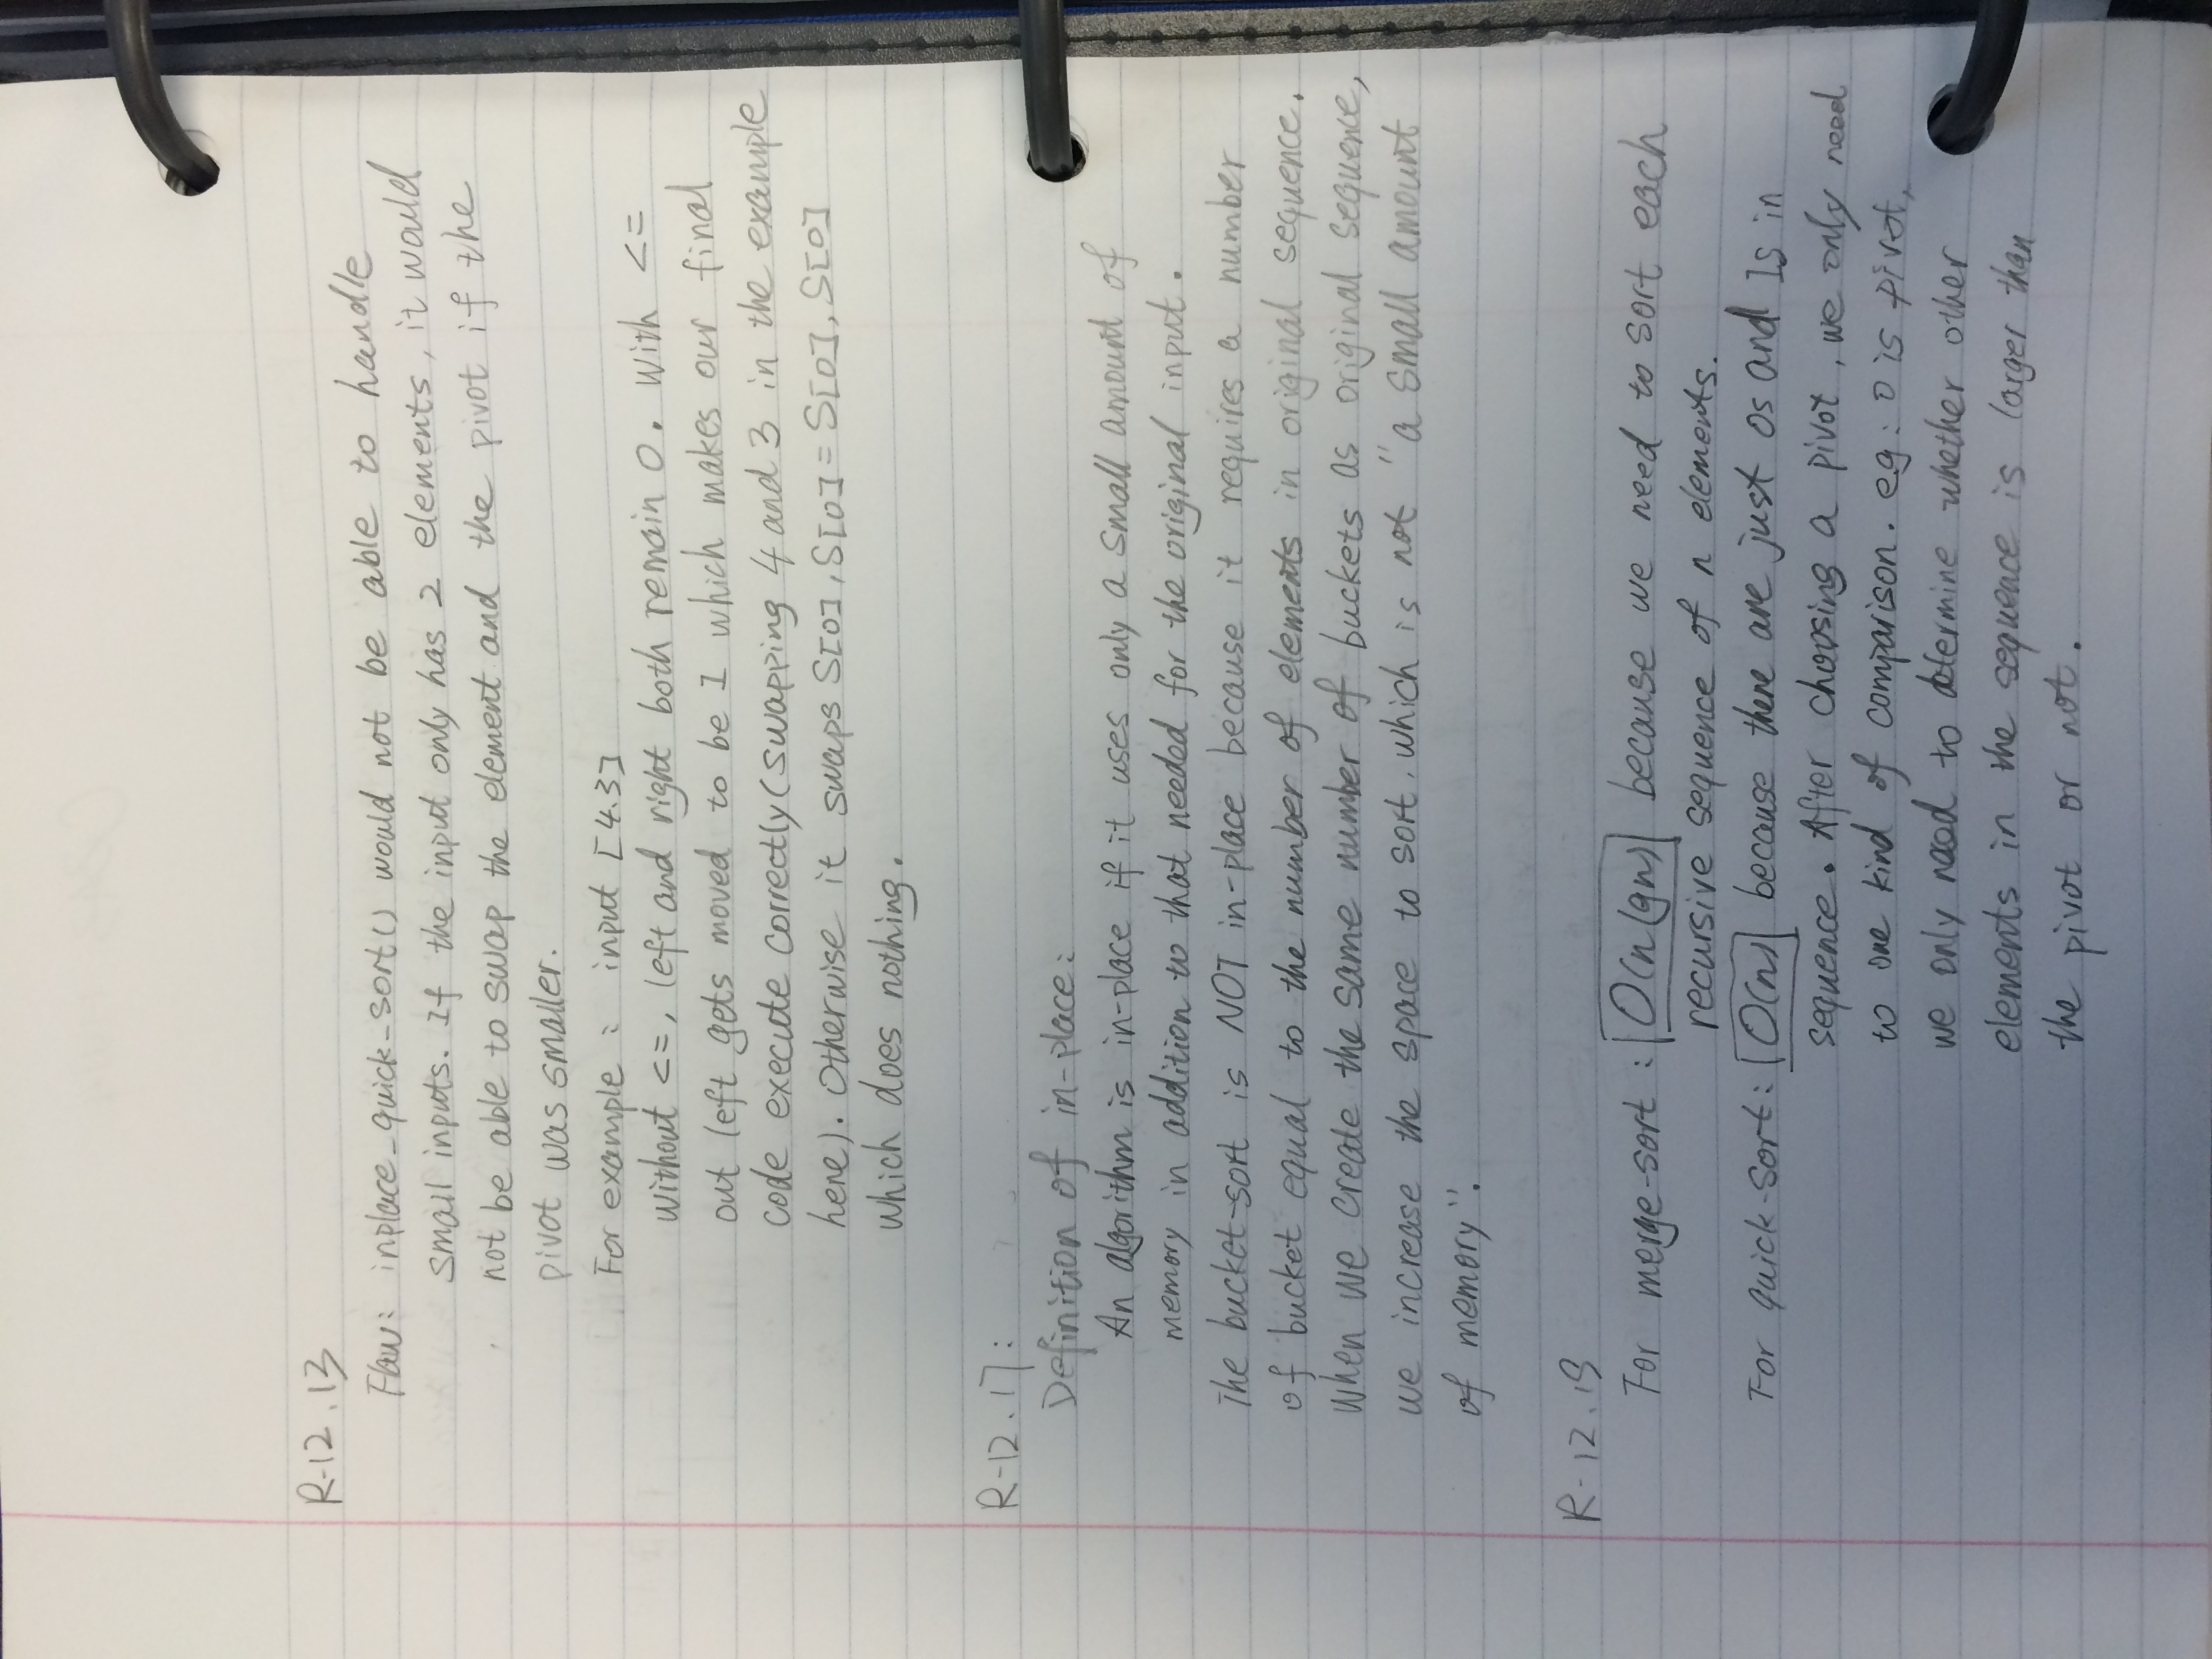 R-12.13
Flaw: inplace_quick_sort() would not be able to handle
small inputs. If the input only has 2 elements, it would
not be able to swap the element and the pivot if the
pivot was smaller.
For example: input [4.3]
without <=, left and right both remain 0. With <=
out left gets moved to be 1 which makes our final
code execute correctly (swapping 4 and 3 in the example
here). Otherwise it swaps S[0], S[0] = S[0], S[0]
which does nothing.
R-12.17:
Definition of in-place:
An algorithm is in-place if it uses only a small amount of
memory in addition to that needed for the original input.
The bucket-sort is NOT in-place because it requires a number
of bucket equal to the number of elements in original sequence.
When we create the same number of buckets as original sequence,
we increase the space to sort. which is not "a small amount
of memory".
R-12.19
For merge-sort: O(nlgn) because we need to sort each
recursive sequence of n elements.
For quick-sort: O(n) because there are just 0s and 1s in
sequence. After choosing a pivot, we only need
to one kind of comparison. e.g: 0 is pivot,
we only need to determine whether other
elements in the sequence is larger than
the pivot or not.